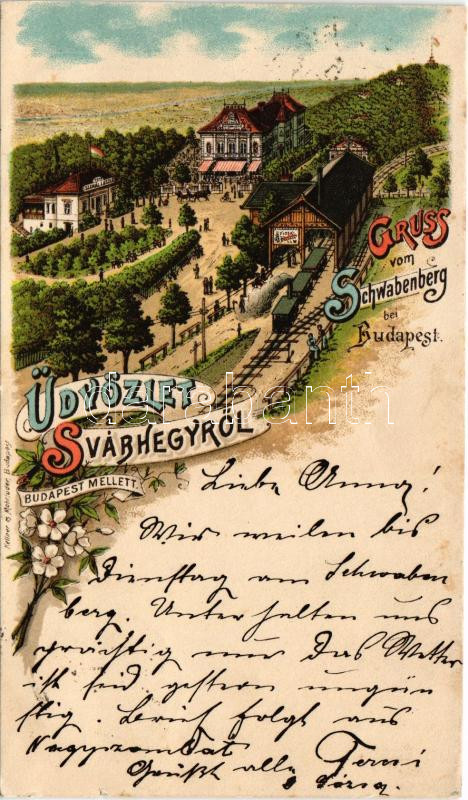 GRUSS
vom
Schwabenberg
bei
Budapest.
ÜDVÖZLET
SVÁBHEGYRŐL
BUDAPEST MELLETT.
Budapest
darabanth
Liebe Anna!
Wir weilen bis
Dienstag am Schwaben
berg. Unterhalten uns
prächtig nur das Wetter
ist seid gestern ungün
stig. Brief folgt aus
Nagyszombat
Grüßt alle